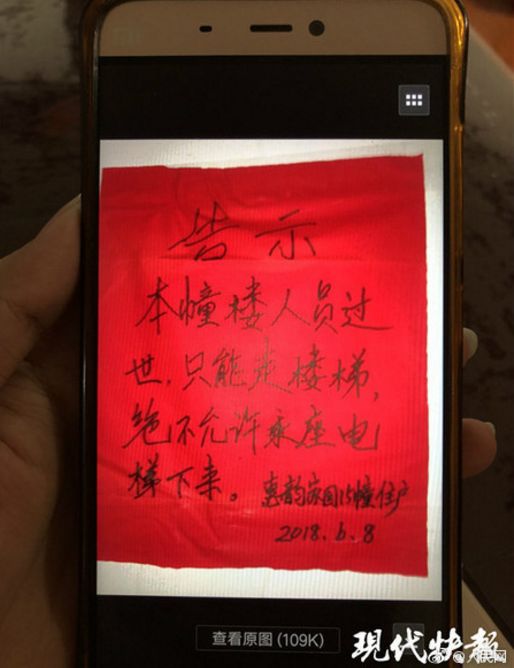 MI
告示
本幢楼人员过
世，只能走楼梯，
绝不允许乘座电
梯下来。惠韵家园15幢住户
2018.6.8
查看原图（109K）
现代快报